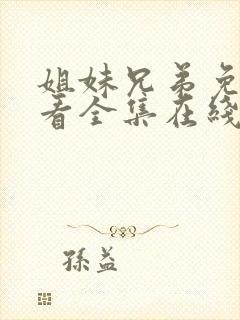 姐妹兄弟免
看全集在线
孫益